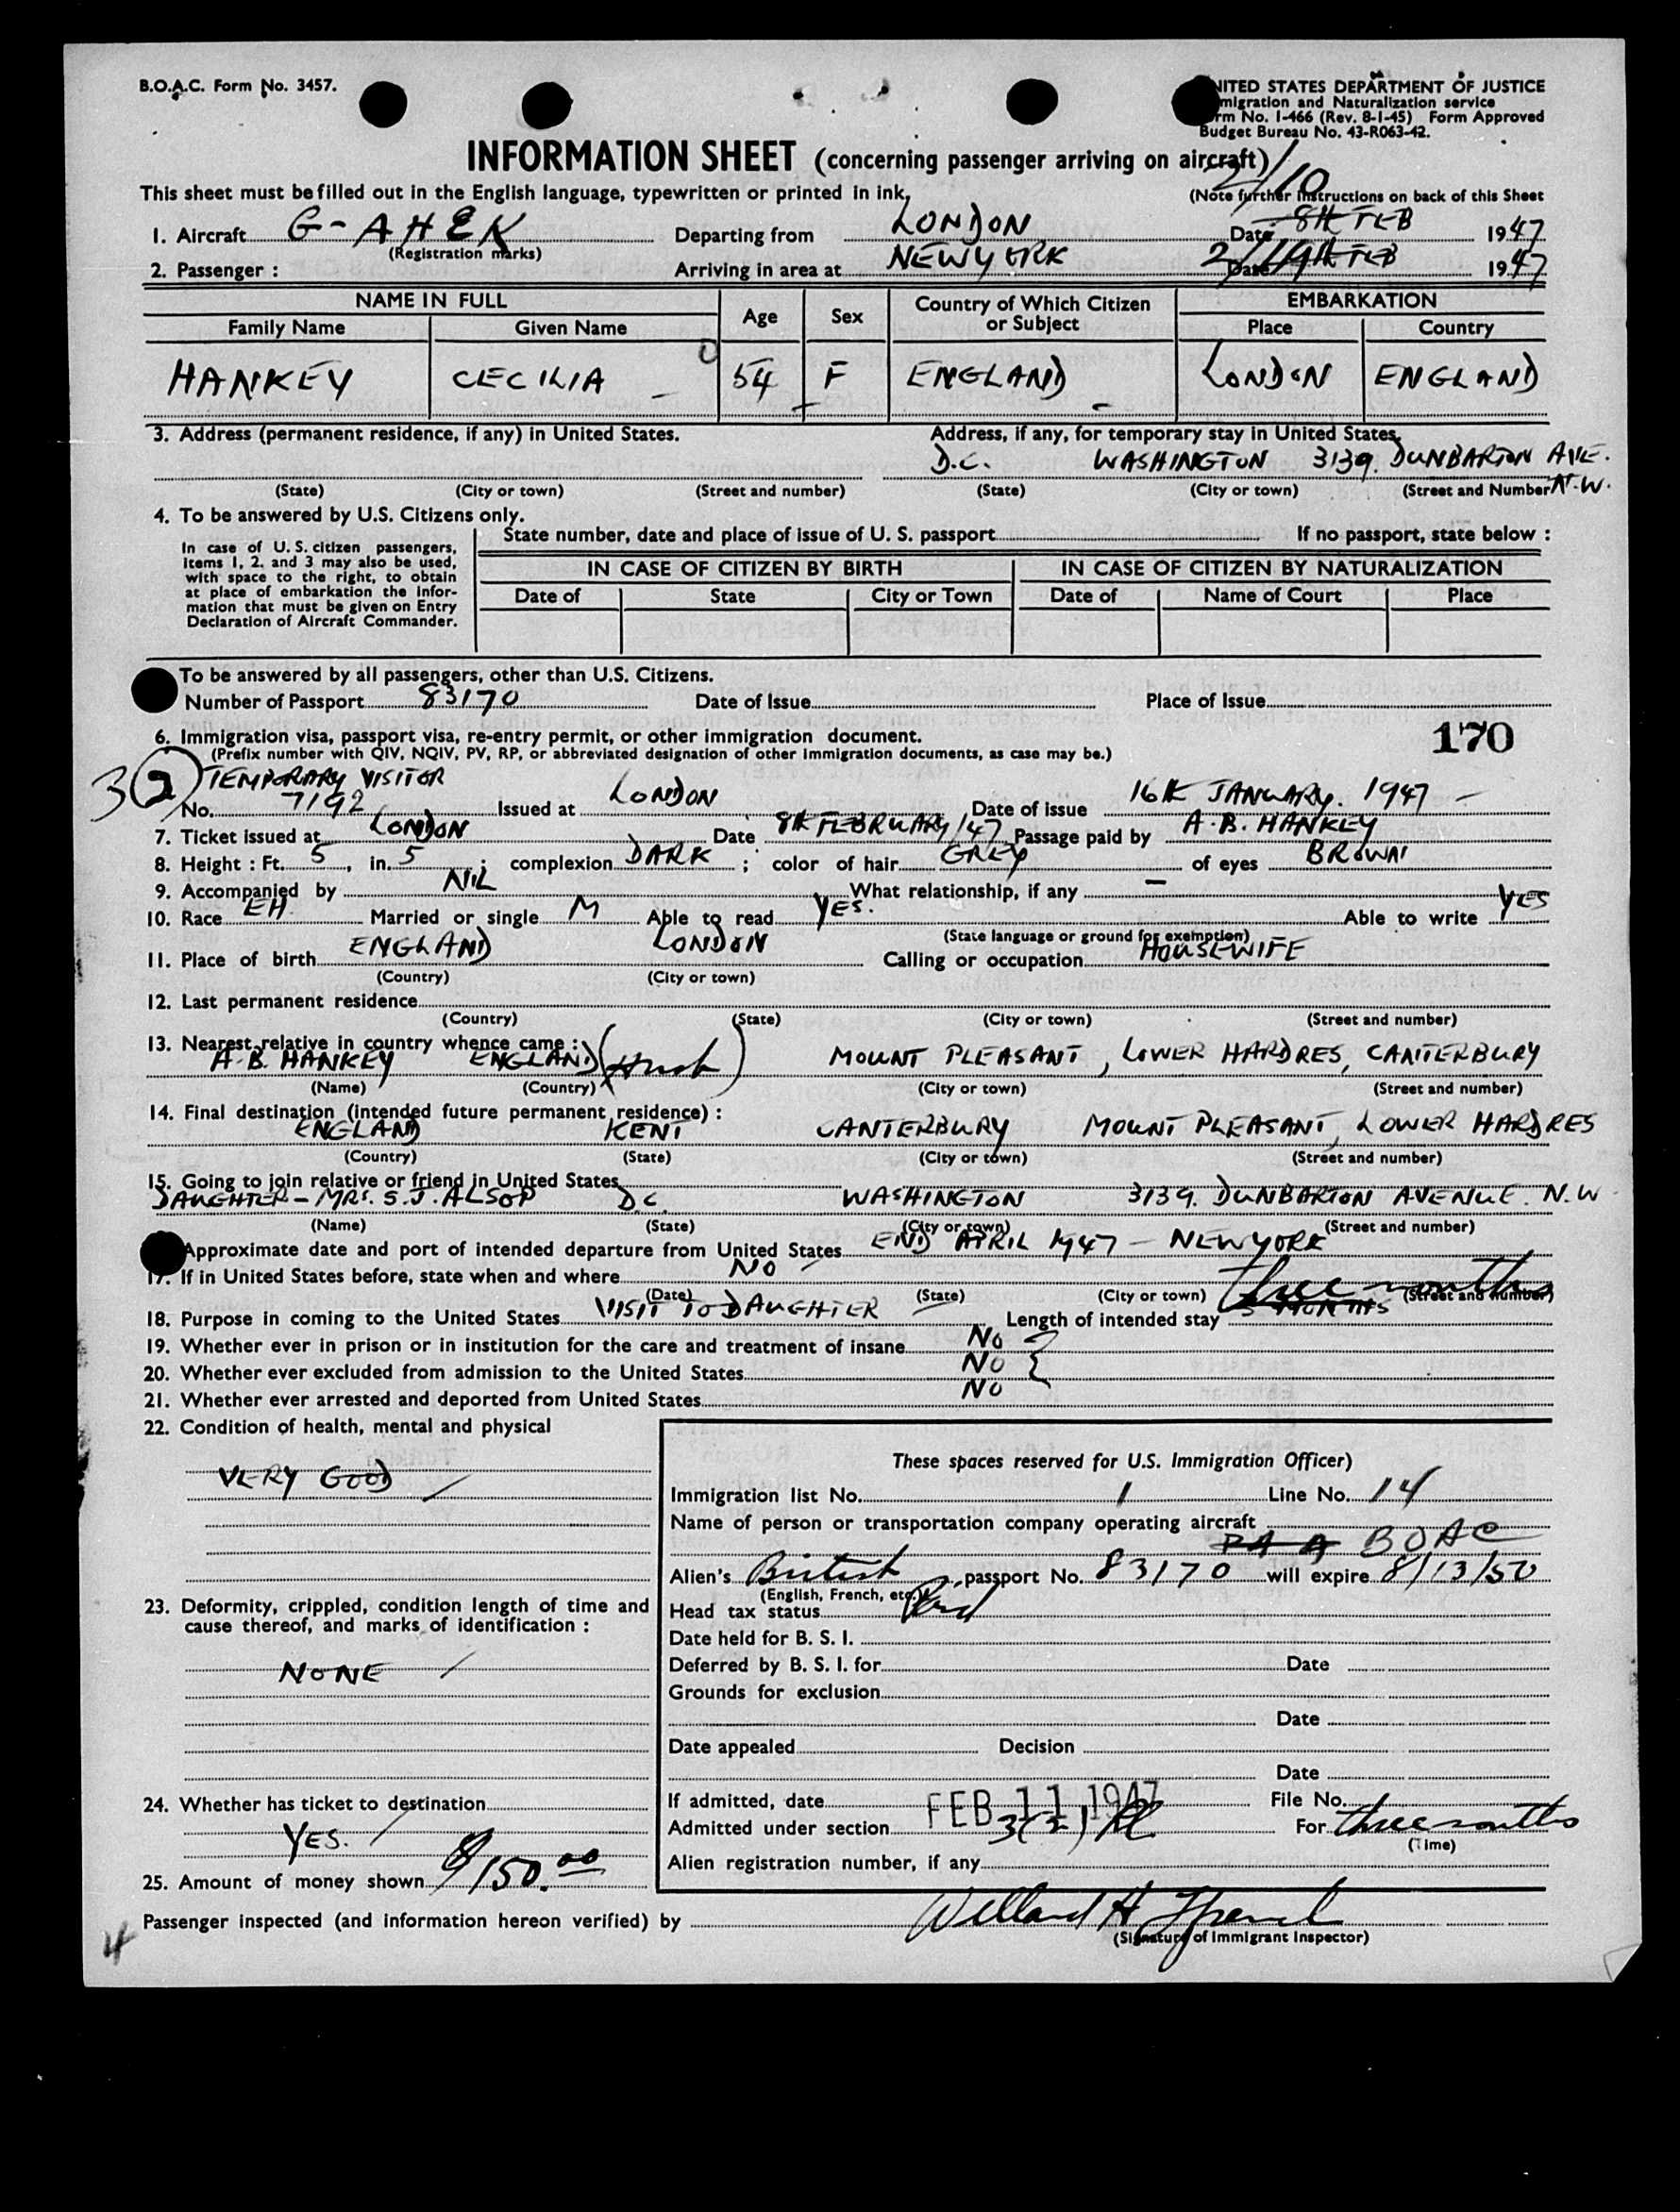 B.O.A.C. Form No. 3457.
UNITED STATES DEPARTMENT OF JUSTICE
Immigration and Naturalization service
Form No. I-466 (Rev. 8-1-45) Form Approved
Budget Bureau No. 43-R063-42.
INFORMATION SHEET (concerning passenger arriving on aircraft)
This sheet must be filled out in the English language, typewritten or printed in ink.
(Note further instructions on back of this Sheet
2/10
1. Aircraft G-AHEK Departing from LONDON Date 8th FEB 1947
(Registration marks)
2. Passenger : Arriving in area at NEWYORK Date 9th FEB 1947
NAME IN FULL Age Sex Country of Which Citizen or Subject EMBARKATION
Family Name Given Name Place Country
HANKEY CECILIA 54 F ENGLAND LONDON ENGLAND
3. Address (permanent residence, if any) in United States. Address, if any, for temporary stay in United States.
D.C. WASHINGTON 3139. DUNBARTON AVE. N.W.
(State) (City or town) (Street and number) (State) (City or town) (Street and Number
4. To be answered by U.S. Citizens only.
In case of U.S. citizen passengers, items 1, 2, and 3 may also be used, with space to the right, to obtain at place of embarkation the information that must be given on Entry Declaration of Aircraft Commander.
State number, date and place of issue of U. S. passport If no passport, state below :
IN CASE OF CITIZEN BY BIRTH IN CASE OF CITIZEN BY NATURALIZATION
Date of State City or Town Date of Name of Court Place
To be answered by all passengers, other than U.S. Citizens.
Number of Passport 83170 Date of Issue Place of Issue
170
6. Immigration visa, passport visa, re-entry permit, or other immigration document.
(Prefix number with QIV, NQIV, PV, RP, or abbreviated designation of other immigration documents, as case may be.)
3(2) TEMPORARY VISITOR
No. 7192 Issued at LONDON Date of issue 16th JANUARY. 1947 -
7. Ticket issued at LONDON Date 8th FEBRUARY/47 Passage paid by A.B. HANKEY
8. Height : Ft. 5, in. 5 ; complexion DARK ; color of hair GREY of eyes BROWN
9. Accompanied by NIL What relationship, if any —
10. Race EH. Married or single M Able to read YES. Able to write YES
(State language or ground for exemption)
11. Place of birth ENGLAND LONDON Calling or occupation HOUSEWIFE
(Country) (City or town)
12. Last permanent residence
(Country) (State) (City or town) (Street and number)
13. Nearest relative in country whence came :
A.B. HANKEY ENGLAND (Husb) MOUNT PLEASANT, LOWER HARDRES, CANTERBURY
(Name) (Country) (City or town) (Street and number)
14. Final destination (intended future permanent residence) :
ENGLAND KENT CANTERBURY MOUNT PLEASANT, LOWER HARDRES
(Country) (State) (City or town) (Street and number)
15. Going to join relative or friend in United States
DAUGHTER - MRS. S.J. ALSOP D.C. WASHINGTON 3139. DUNBARTON AVENUE. N.W.
(Name) (State) (City or town) (Street and number)
Approximate date and port of intended departure from United States END APRIL 1947 - NEWYORK
17. If in United States before, state when and where NO
(Date) (State) (City or town) (Street and number)
three months
18. Purpose in coming to the United States VISIT TO DAUGHTER Length of intended stay 3 MONTHS
19. Whether ever in prison or in institution for the care and treatment of insane NO
20. Whether ever excluded from admission to the United States NO
21. Whether ever arrested and deported from United States NO
22. Condition of health, mental and physical
VERY GOOD
23. Deformity, crippled, condition length of time and cause thereof, and marks of identification :
NONE
24. Whether has ticket to destination
YES.
25. Amount of money shown $150.00
These spaces reserved for U.S. Immigration Officer)
Immigration list No. 1 Line No. 14
Name of person or transportation company operating aircraft
PAA BOAC
Alien's British passport No. 83170 will expire 8/13/50
(English, French, etc.)
Head tax status Pd
Date held for B. S. I.
Deferred by B. S. I. for Date
Grounds for exclusion
Date
Date appealed Decision
Date
If admitted, date FEB 11 1947 File No.
Admitted under section 3(2) For three months
(Time)
Alien registration number, if any
Passenger inspected (and information hereon verified) by
(Signature of Immigrant Inspector)
4